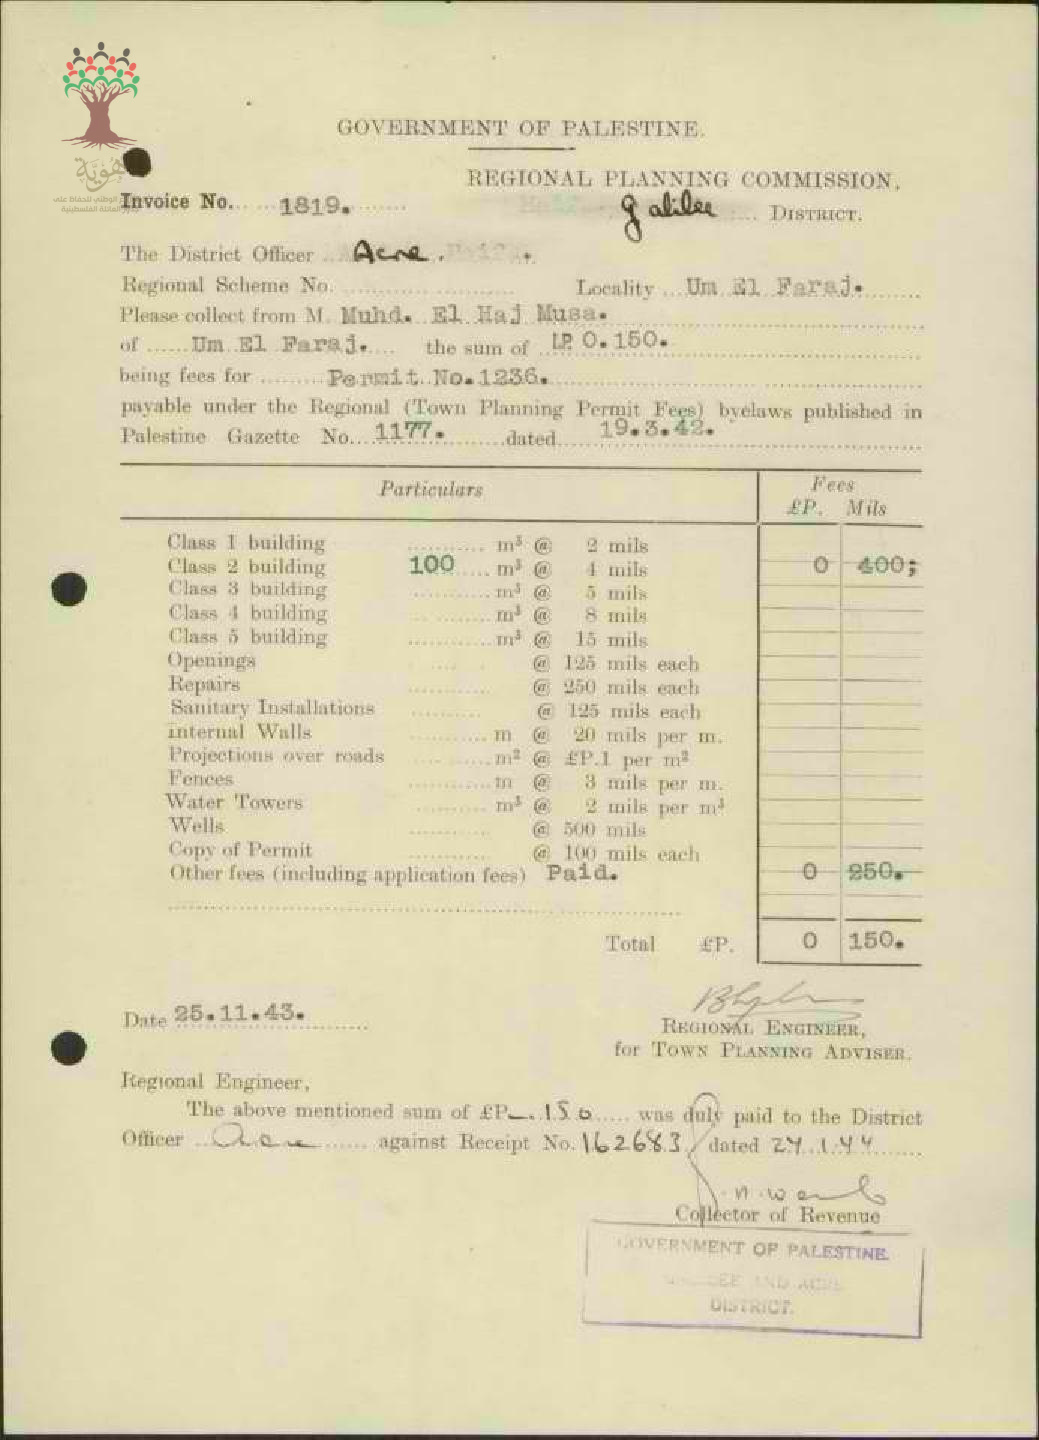 هُوِيَّة
GOVERNMENT OF PALESTINE.
REGIONAL PLANNING COMMISSION,
Invoice No. 1819. Galilee DISTRICT.
The District Officer Acre. Haifa.
Regional Scheme No. Locality Um El Faraj.
Please collect from M. Muhd. El Haj Musa.
of Um El Faraj. the sum of LP. 0.150.
being fees for Permit No. 1236.
payable under the Regional (Town Planning Permit Fees) byelaws published in
Palestine Gazette No. 1177. dated 19.3.42.
Particulars Fees
£P. Mils
Class 1 building m³ @ 2 mils
Class 2 building 100 m³ @ 4 mils 0 400;
Class 3 building m³ @ 5 mils
Class 4 building m³ @ 8 mils
Class 5 building m³ @ 15 mils
Openings @ 125 mils each
Repairs @ 250 mils each
Sanitary Installations @ 125 mils each
Internal Walls m @ 20 mils per m.
Projections over roads m² @ £P.1 per m²
Fences m @ 3 mils per m.
Water Towers m³ @ 2 mils per m³
Wells @ 500 mils
Copy of Permit @ 100 mils each
Other fees (including application fees) Paid. 0 250.
Total £P. 0 150.
Date 25.11.43.
REGIONAL ENGINEER,
for TOWN PLANNING ADVISER.
Regional Engineer,
The above mentioned sum of £P—.150 was duly paid to the District
Officer Acre against Receipt No. 162683 dated 27.1.44
Collector of Revenue
GOVERNMENT OF PALESTINE.
AND ACRE
DISTRICT.